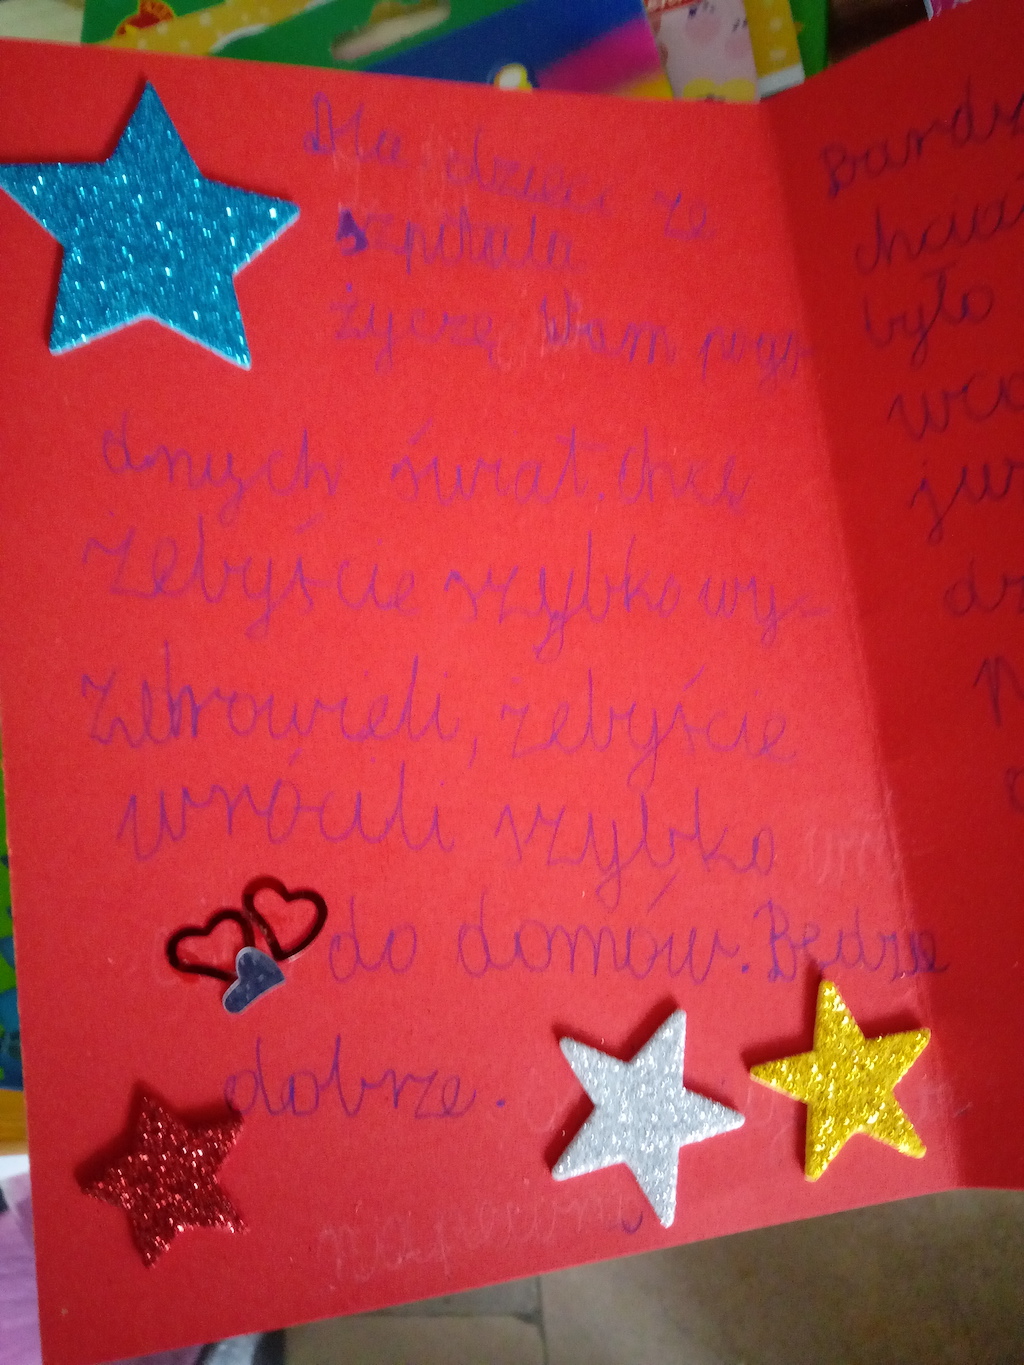 Dla dzieci ze
szpitala
życzę Wam pogo-
dnych świąt. chcę
żebyście szybko wy-
zdrowieli, żebyście
wrócili szybko
do domów. Będzie
dobrze.
Bardz
chcia
było